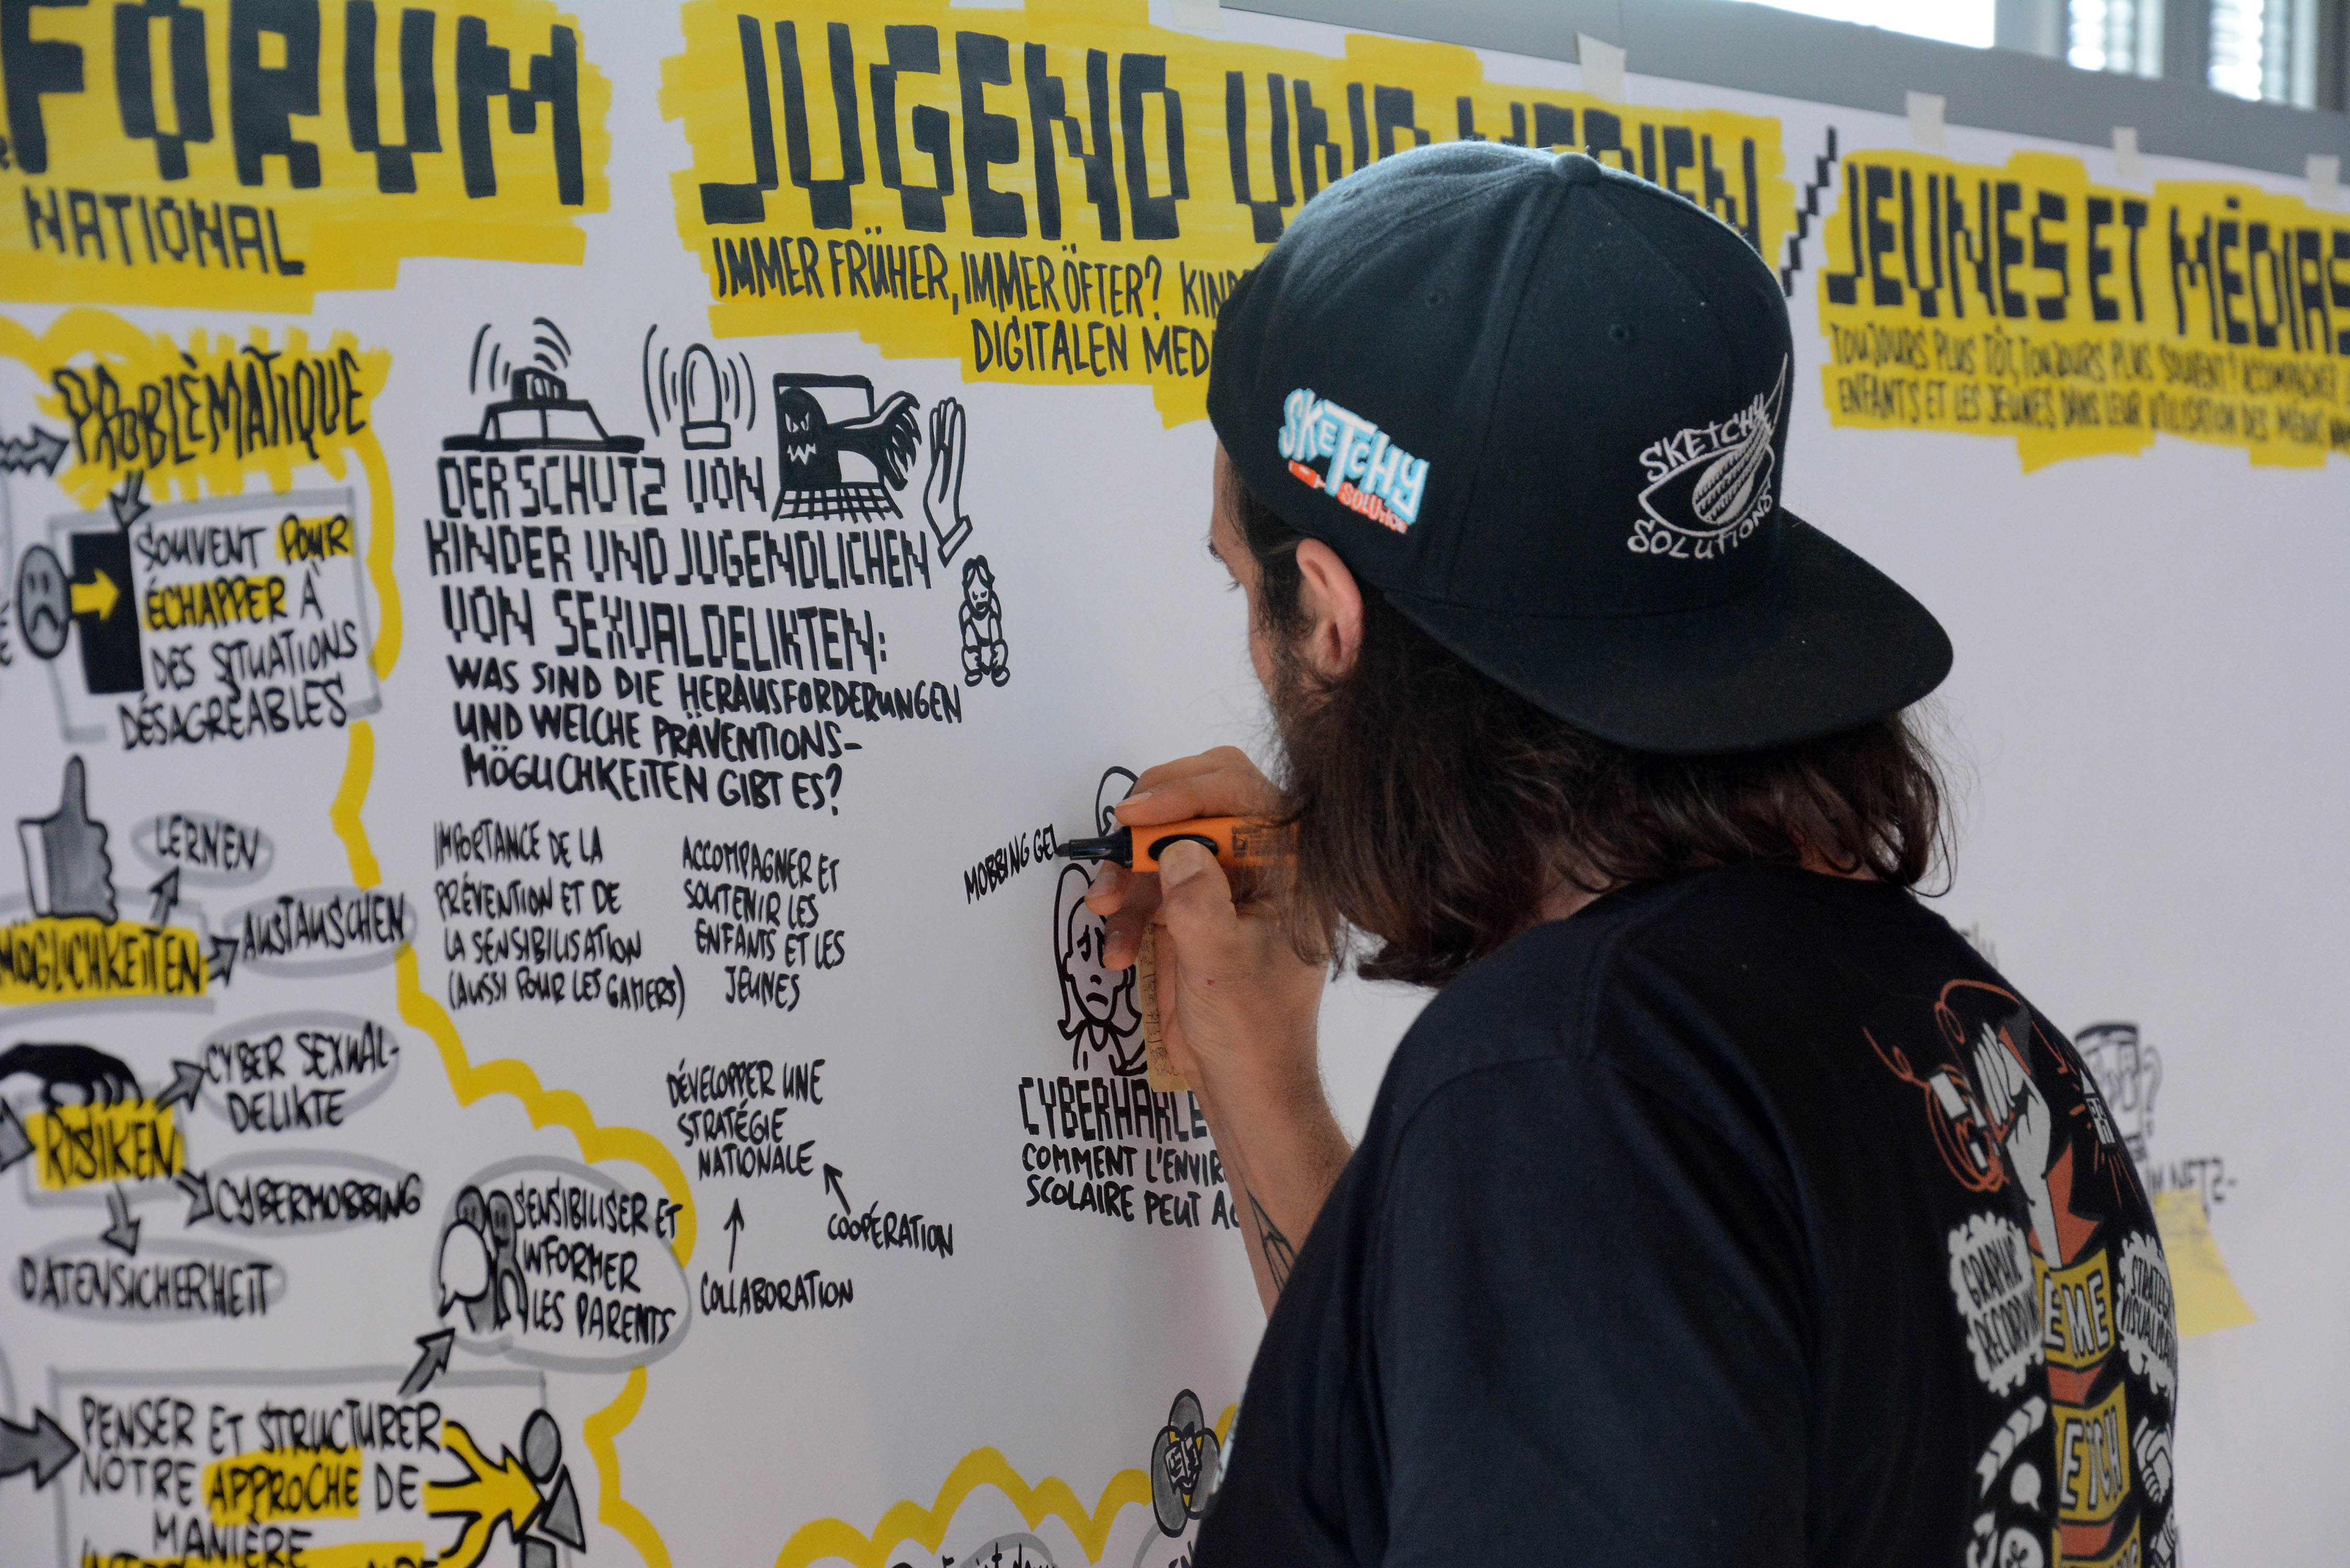 FORUM
NATIONAL
JUGEND UND MEDIEN
IMMER FRÜHER, IMMER ÖFTER?
DIGITALEN
/ JEUNES ET MÉDIAS
TOUJOURS PLUS TÔT, TOUJOURS PLUS SOUVENT? ACCOMPAGNER
ENFANTS ET LES JEUNES DANS LEUR UTILISATION DES MÉDIAS
PROBLÈMATIQUE
SOUVENT POUR
ÉCHAPPER À
DES SITUATIONS
DÉSAGRÉABLES
LERNEN
AUSTAUSCHEN
MÖGLICHKEITEN
CYBER SEXUAL-
DELIKTE
RISIKEN
CYBERMOBBING
DATENSICHERHEIT
SENSIBILISER ET
INFORMER
LES PARENTS
PENSER ET STRUCTURER
NOTRE APPROCHE DE
MANIÈRE
DER SCHUTZ VON
KINDER UND JUGENDLICHEN
VON SEXUALDELIKTEN:
WAS SIND DIE HERAUSFORDERUNGEN
UND WELCHE PRÄVENTIONS-
MÖGLICHKEITEN GIBT ES?
IMPORTANCE DE LA
PRÉVENTION ET DE
LA SENSIBILISATION
(AUSSI POUR LES GAMERS)
ACCOMPAGNER ET
SOUTENIR LES
ENFANTS ET LES
JEUNES
DÉVELOPPER UNE
STRATÉGIE
NATIONALE
COOPÉRATION
COLLABORATION
MOBBING GEL
CYBERHARCE
COMMENT L'ENVIR
SCOLAIRE PEUT
SKETCHY
SOLUTION
SKETCHY
SOLUTIONS
GRAPHIC
RECORDING
EME
ETCH
IM NETZ-